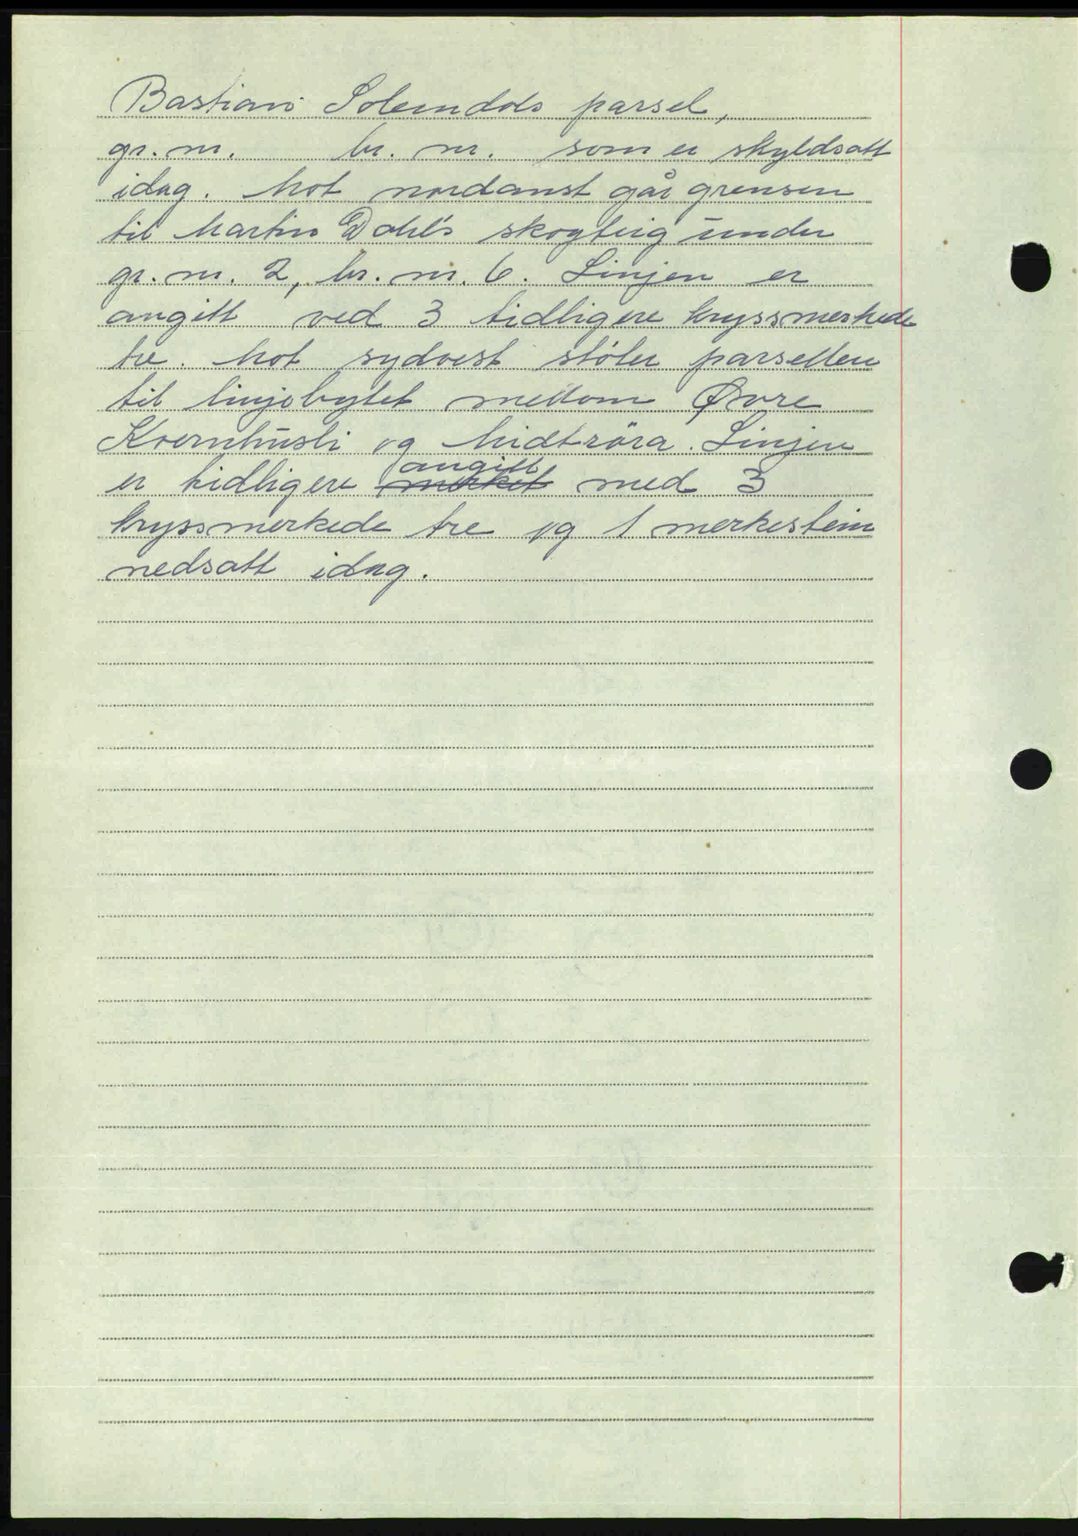 Bastian Solemdals parsel,
gr. nr. br. nr. som er skyldsatt
idag. Mot nordaust går grensen
til Martin Dahls skogteig under
gr. nr. 2, br. nr. 6. Linjen er
angitt ved 3 tidligere kryssmerkede
tre. Mot sydvest støter parsellen
til linjebytet mellom Øvre
Kvernhusli og Midtröra. Linjen
er tidligere merket angitt med 3
kryssmerkede tre og 1 merkestein
nedsatt idag.